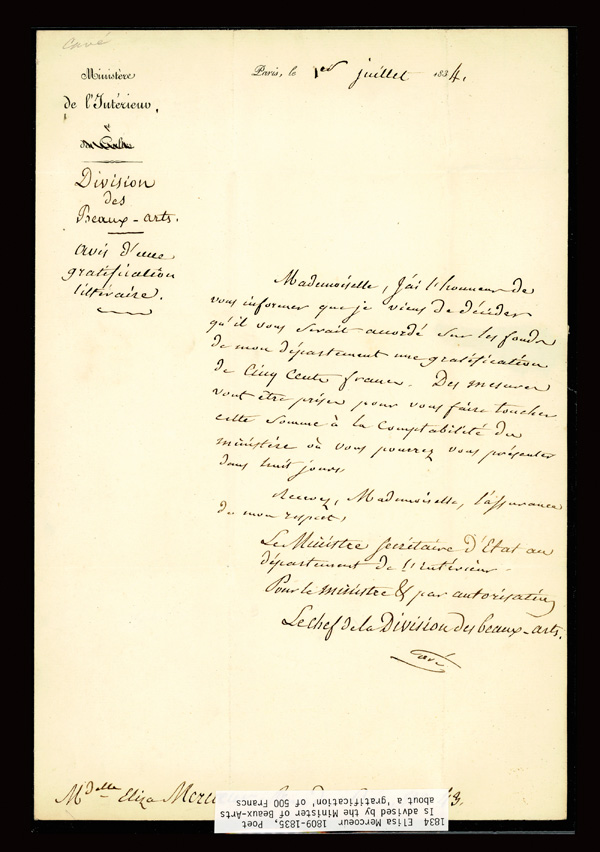 Cavé
Ministère
de l'Intérieur,
Division
des
Beaux-arts.
avis d'une
gratification
littéraire.
Paris, le 1er juillet 1834.
Mademoiselle, J'ai l'honneur de
vous informer que je viens de décider
qu'il vous serait accordé sur les fonds
de mon département une gratification
de Cinq Cents francs. Des mesures
vont être prises pour vous faire toucher
cette somme à la Comptabilité du
ministère où vous pourrez vous présenter
dans huit jours.
Recevez, Mademoiselle, l'assurance
de mon respect,
Le Ministre Secrétaire d'Etat au
département de l'intérieur.
Pour le ministre & par autorisation
Le chef de la Division des beaux-arts.
Cavé
Mdelle Eliza Mercoeur
1834 Elisa Mercoeur 1809-1835, Poet
Is advised by the Minister of Beaux-Arts
about a 'gratification' of 500 Francs